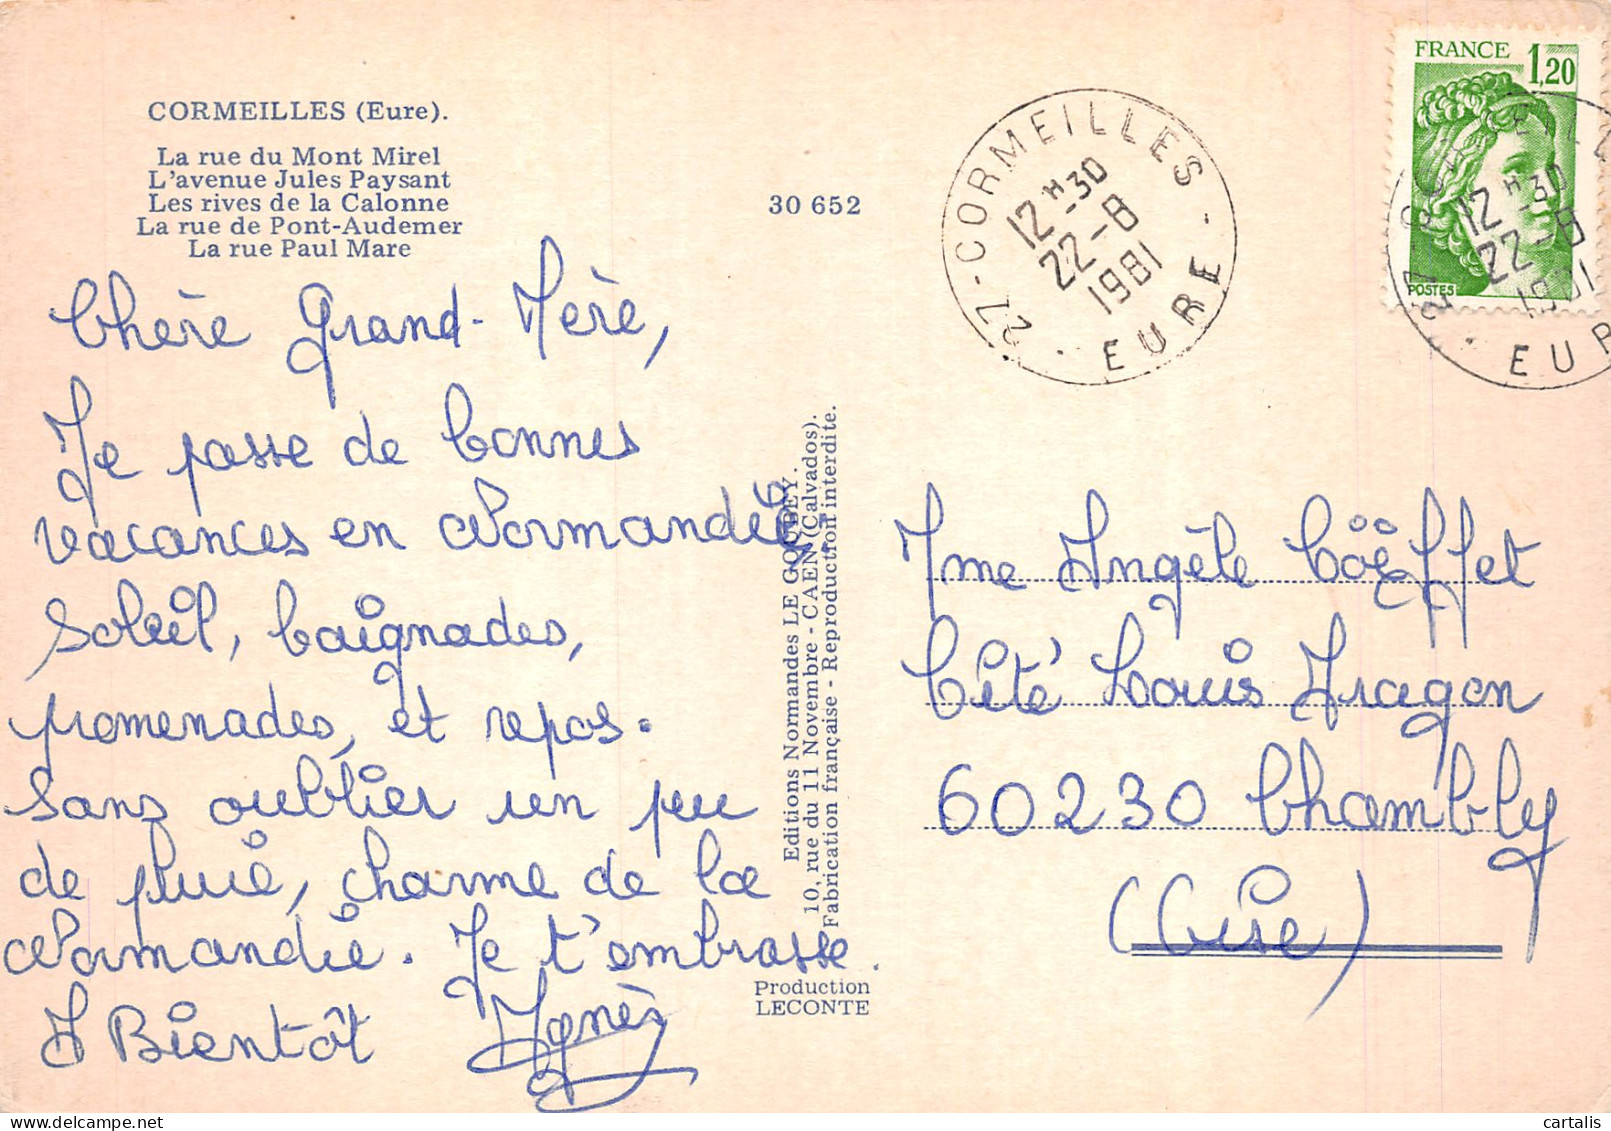 CORMEILLES (Eure).
La rue du Mont Mirel
L'avenue Jules Paysant
Les rives de la Calonne
La rue de Pont-Audemer
La rue Paul Mare
30 652
27 - CORMEILLES - EURE
12 H 30
22-8
1981
FRANCE 1,20
POSTES
12 H 30
22-8
1981
Chère Grand-Mère,
Je passe de bonnes
vacances en Normandie
soleil, baignades,
promenades, et repos.
Sans oublier un peu
de pluie, charme de la
Normandie. Je t'embrasse.
A Bientôt Agnès
Editions Normandes LE GOUBEY.
10, rue du 11 Novembre - CAEN (Calvados).
Fabrication française - Reproduction interdite.
Production
LECONTE
Mme Angèle Cöeffet
Cité Louis Aragon
60230 Chambly
(Oise)
cartalis